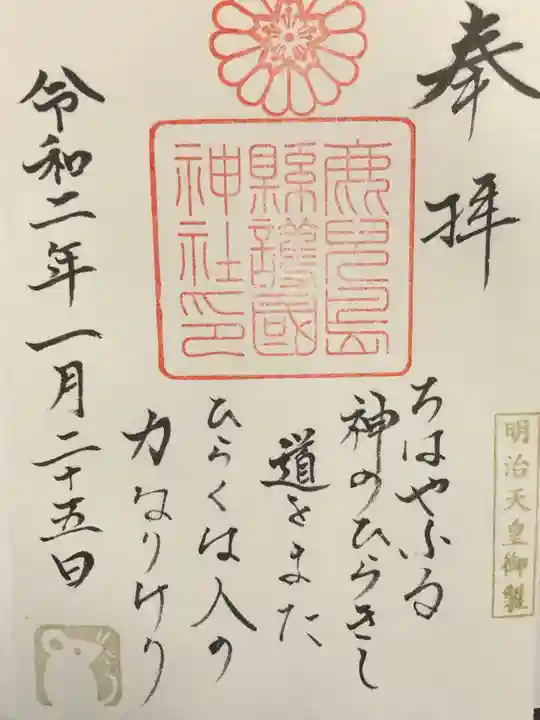 奉拝
鹿児島
縣護國
神社印
明治天皇御製
ちはやふる
神のひらきし
道をまた
ひらくは人の
力なりけり
令和二年一月二十五日